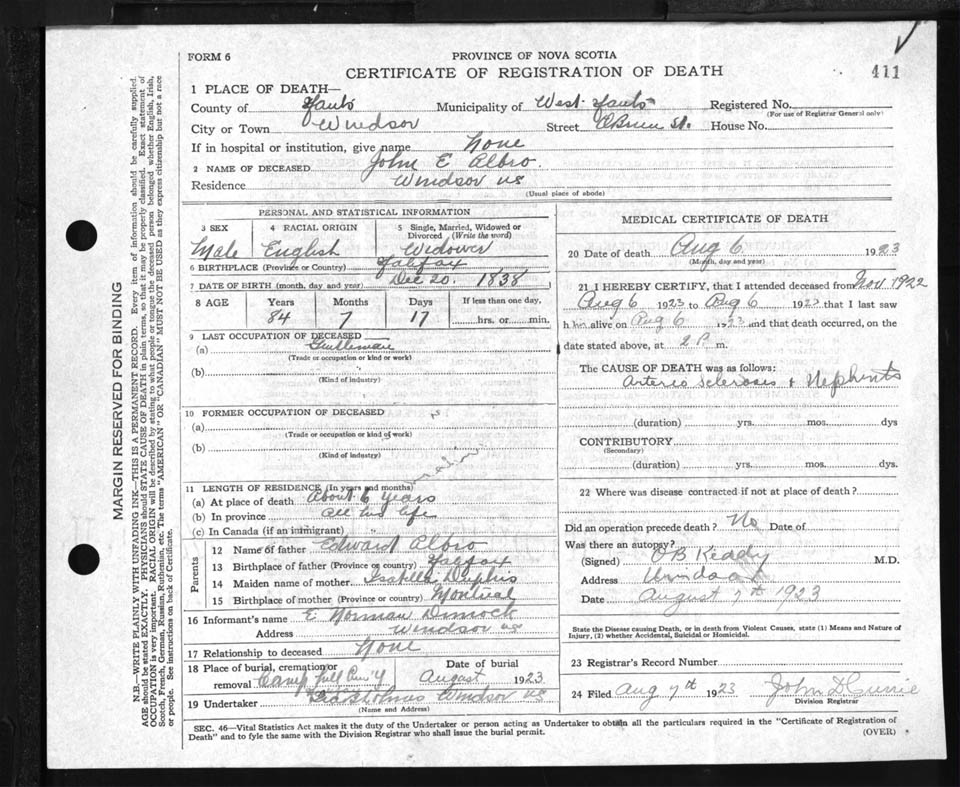 FORM 6
PROVINCE OF NOVA SCOTIA
CERTIFICATE OF REGISTRATION OF DEATH
411
1 PLACE OF DEATH—
County of Hants Municipality of West Hants Registered No.
(For use of Registrar General only)
City or Town Windsor Street O'Brien St. House No.
If in hospital or institution, give name None
2 NAME OF DECEASED John E Albro.
Residence Windsor NS
(Usual place of abode)
PERSONAL AND STATISTICAL INFORMATION
3 SEX 4 RACIAL ORIGIN 5 Single, Married, Widowed or Divorced (Write the word)
Male English Widower
6 BIRTHPLACE (Province or Country) Halifax
7 DATE OF BIRTH (month, day and year) Dec 20. 1838
8 AGE Years Months Days If less than one day,
84 7 17 hrs. or min.
9 LAST OCCUPATION OF DECEASED
(a) Gentleman
(Trade or occupation or kind or work)
(b)
(Kind of industry)
10 FORMER OCCUPATION OF DECEASED
(a)
(Trade or occupation or kind of work)
(b)
(Kind of industry)
11 LENGTH OF RESIDENCE (In years and months)
(a) At place of death About 6 years
(b) In province All his life
(c) In Canada (if an immigrant) "
Parents
12 Name of father Edward Albro
13 Birthplace of father (Province or country) Halifax
14 Maiden name of mother Isabella
15 Birthplace of mother (Province or country) Montreal
16 Informant's name E Norman Dimock
Address Windsor NS
17 Relationship to deceased None
18 Place of burial, cremation or removal Camp Hill Cem'y Date of burial August 1923
19 Undertaker Windsor NS
(Name and Address)
MEDICAL CERTIFICATE OF DEATH
20 Date of death Aug 6 1923
(Month, day and year)
21 I HEREBY CERTIFY, that I attended deceased from Nov. 1922
Aug 6 1923 to Aug 6 1923 that I last saw
h im alive on Aug 6 1923 and that death occurred, on the
date stated above, at 2 P. m.
The CAUSE OF DEATH was as follows:
Arterio Sclerosis & Nephritis
(duration) yrs. mos. dys
CONTRIBUTORY
(Secondary)
(duration) yrs. mos. dys.
22 Where was disease contracted if not at place of death?
Did an operation precede death? No Date of
Was there an autopsy?
(Signed) O B Keddy M.D.
Address Windsor
Date August 7th 1923
State the Disease causing Death, or in death from Violent Causes, state (1) Means and Nature of
Injury, (2) whether Accidental, Suicidal or Homicidal.
23 Registrar's Record Number
24 Filed Aug 7th 1923 John D Currie
Division Registrar
SEC. 46—Vital Statistics Act makes it the duty of the Undertaker or person acting as Undertaker to obtain all the particulars required in the "Certificate of Registration of
Death" and to fyle the same with the Division Registrar who shall issue the burial permit.
(OVER)
MARGIN RESERVED FOR BINDING
N.B.—WRITE PLAINLY WITH UNFADING INK—THIS IS A PERMANENT RECORD. Every item of information should be carefully supplied.
AGE should be stated EXACTLY. PHYSICIANS should STATE CAUSE OF DEATH in plain terms, so that it may be properly classified. Exact statement of
OCCUPATION is very important. RACIAL ORIGIN will be described by stating to what people or tongue the deceased person belonged whether English, Irish,
Scotch, French, German, Russian, Ruthenian, etc. The terms "AMERICAN" OR "CANADIAN" MUST NOT BE USED as they express citizenship but not a race
or people. See instructions on back of Certificate.